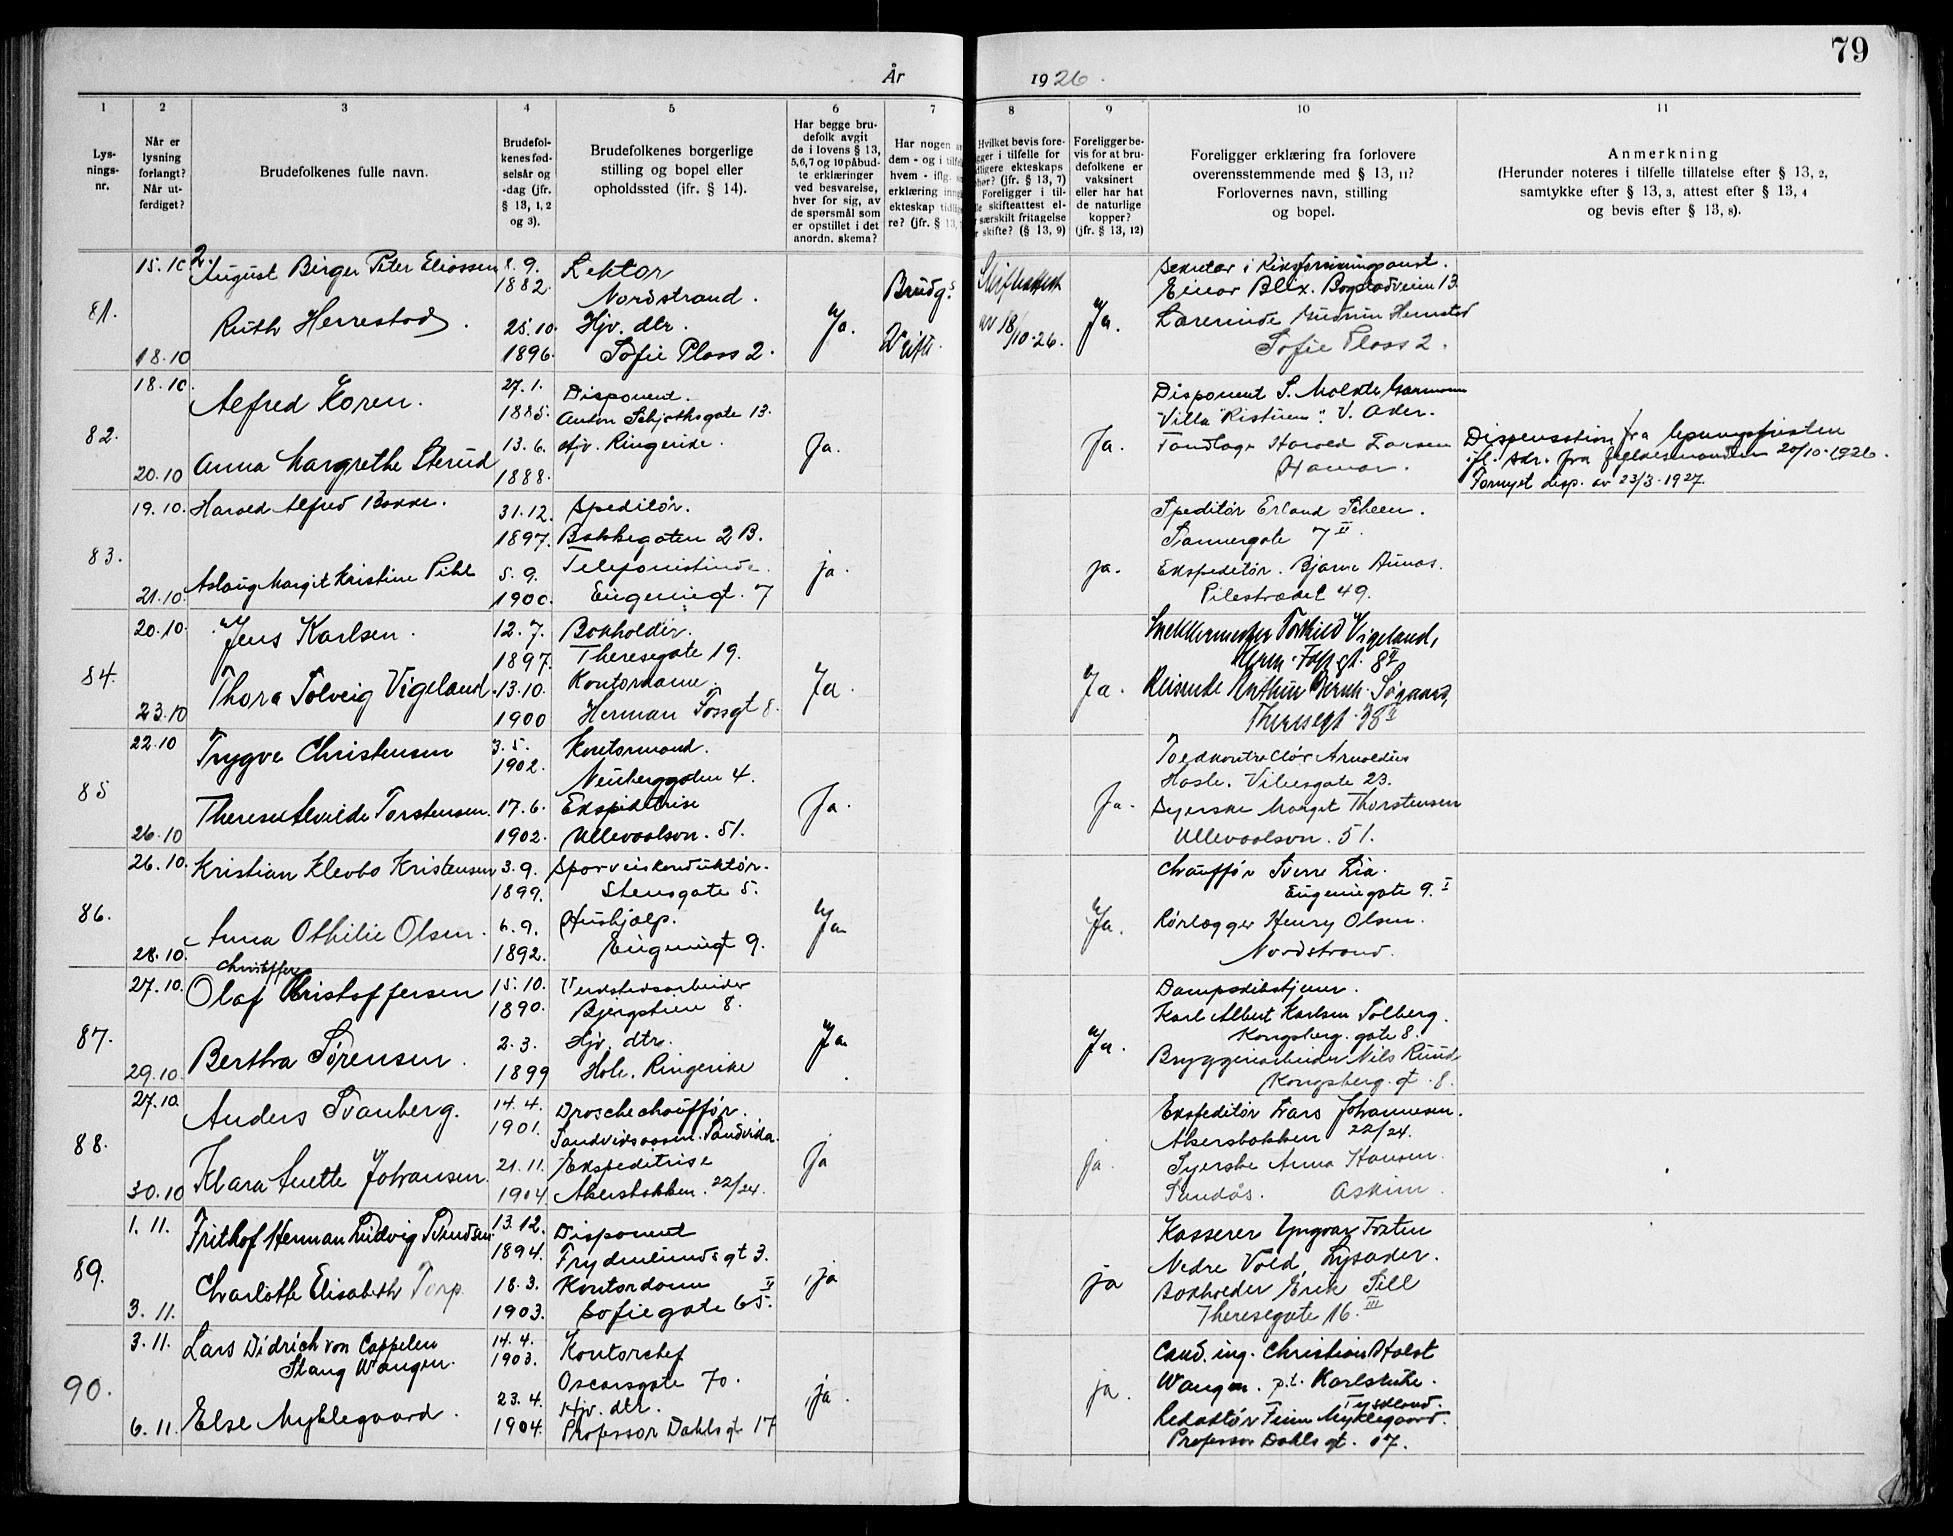 79
År 1926.
1 2 3 4 5 6 7 8 9 10 11
Lys-
nings-
nr.
Når er
lysning
forlangt?
Når ut-
ferdiget?
Brudefolkenes fulle navn.
Brudefol-
kenes fød-
selsår og
-dag (jfr.
§ 13, 1, 2
og 3).
Brudefolkenes borgerlige
stilling og bopel eller
opholdssted (jfr. § 14).
Har begge bru-
defolk avgit
de i lovens § 13,
5,6,7 og 10 påbud-
te erklæringer
ved besvarelse,
hver for sig, av
de spørsmål som
er opstillet i det
anordn. skema?
Har nogen
dem - og i
hvem - iflg.
erklæring
ekteskap
re? (jfr. § 13,
Hvilket bevis fore-
i tilfelle for
ekteskaps
(jfr. § 13, 7)
Foreligger i til-
skifteattest el-
særskilt fritagelse
skifte? (§ 13, 9)
Foreligger be-
vis for at bru-
defolkene er
vaksinert
eller har hat
de naturlige
kopper?
(jfr. § 13, 12)
Foreligger erklæring fra forlovere
overensstemmende med § 13, 11?
Forlovernes navn, stilling
og bopel.
Anmerkning
(Herunder noteres i tilfelle tillatelse efter § 13, 2,
samtykke efter § 13, 3, attest efter § 13, 4
og bevis efter § 13, 8).
81.
15.10
18.10
2.
August Birger Peter Eliassen
Ruth Herrestad.
8.9.
1882.
25.10.
1896.
Lektor
Nordstrand.
Hjv. dtr.
Sofie Plass 2.
Ja.
Brudg.
av 18/10-26.
Ja.
Einar Blix. Bogstadveien 13
Lærerinde Gudrun
Sofie Plass 2.
82.
18.10.
20.10
Alfred Koren.
Anna Margrethe Sterud
27.1.
1885.
13.6.
1888.
Disponent.
Anton Schjøthsgate 13.
Hjv. Ringerike.
Ja.
Ja.
Disponent S. Molde
Villa
Tandlæge Harald Larsen
Hamar.
Dispensation fra lysningsfristen
20/10-1926.
Fornyet disp. av 23/3-1927
83.
19.10.
21.10.
Harald Alfred Bakke.
Aslaug Margit Kristine Pihl
31.12.
1897.
5.9.
1900.
Speditør.
Bakkegaten 2 B.
Telefonistinde.
Eugeniegt. 7
ja.
ja.
Speditør Erland Scheen.
Sannergate 7 II.
Ekspeditør. Bjarne
Pilestrædet 49.
84.
20.10.
23.10
Jens Karlsen.
Thora Solveig Vigeland.
12.7.
1897.
13.10.
1900
Bokholder.
Theresegate 19.
Kontordame.
Herman Fossgt 8.
Ja.
Ja.
Snekkermester Torkild Vigeland,
Herm. Foss gt. 8
Reisende Arthur
Theresegt. 38
85
22.10
26.10
Trygve Christensen
Therese Alvilde Torstensen.
3.5.
1902.
17.6.
1902.
Kontormand.
Neuberggaten 4.
Ekspeditrise
Ullevaalsvn. 51.
Ja.
Ja.
Toldkontrollør Arnoldus
Hasle. Vibesgate 23.
Syerske Margit Thorstensen
Ullevaalsvn. 51.
86.
26.10.
28.10.
Kristian Klevbo Kristensen
Anna Othilie Olsen.
3.9.
1899.
6.9.
1892.
Sporveiskonduktør.
Stensgate 5.
Hushjælp.
Eugeniegt 9.
Ja
Ja.
Chauffør Sverre Lia.
Eugeniegate 9. I
Rørlægger Henry Olsen.
Nordstrand.
87.
27.10.
29.10.
Christoffer
Olaf Kristoffersen
Bertha Sørensen.
15.10.
1890.
2.3.
1899
Verkstedsarbeider
Bjergstien 8.
Hjv. dtr.
Hole. Ringerike
Ja.
Ja.
Karl Albert Karlsen Solberg.
Kongsberg. gate 8.
Bryggeriarbeider Nils Ruud
Kongsberg. gt. 8.
88.
27.10.
30.10
Anders Svanberg.
Klara Anette Johansen.
14.4.
1901.
21.11.
1904
Droschechauffør.
Sandvika.
Ekspeditrise
Akersbakken. 22/24.
ja
ja.
Ekspeditør Lars Johannesen.
Akersbakken 22/24.
Syerske Anna Hansen.
Sandås. Askim.
89.
1.11.
3.11.
Frithof Herman Ludvig Svendsen
Charlotte Elisabeth Torp.
13.12.
1894.
18.3.
1903.
Disponent
Frydenlunds gt 3.
Kontordame
Sofiegate 65.
ja
ja
Kasserer Yngvar Fosten
Nedre Vold, Lysaker.
Bokholder Erik Sill
Theresegate 16. III
90.
3.11.
6.11.
Lars Didrich von Cappelen
Stang Wangen.
Else Myklegaard.
14.4.
1903.
23.4.
1904.
Kontorchef
Oscarsgate 70.
Hjv. dtr.
Professor Dahls gt 17
ja.
ja.
Cand. ing. Christian Holst
Wangen. p.t. Karlsruhe.
Tyskland.
Redaktør Finn Myklegaard.
Professor Dahls gt. 17.